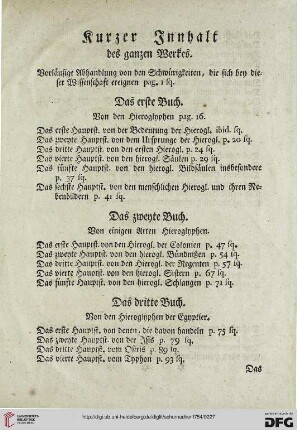 Kurzer Innhalt
des ganzen Werkes.
Vorläufige Abhandlung von den Schwürigkeiten, die sich bey die-
ser Wissenschaft ereignen pag. 1 sq.
Das erste Buch.
Von den Hieroglyphen pag. 16.
Das erste Hauptst. von der Bedeutung der Hierogl. ibid. sq.
Das zweyte Hauptst. von dem Ursprunge der Hierogl. p. 20 sq.
Das dritte Hauptst. von den ersten Hierogl. p. 24 sq.
Das vierte Hauptst. von den hierogl. Säulen p. 29 sq.
Das fünfte Hauptst. von den hierogl. Bildsäulen insbesondere
p. 37 sq.
Das sechste Hauptst. von den menschlichen Hierogl. und ihren Ne-
benbildern p. 41 sq.
Das zweyte Buch.
Von einigen Arten Hieroglyphen.
Das erste Hauptst. von den Hierogl. der Colonien p. 47 sq.
Das zweyte Hauptst. von den hierogl. Bündnüßen p. 54 sq.
Das dritte Hauptst. von den Hierogl. der Regenten p. 57 sq.
Das vierte Hauptst. von den hierogl. Sistern p. 67 sq.
Das fünfte Hauptst. von den hierogl. Schlangen p. 71 sq.
Das dritte Buch.
Von den Hieroglyphen der Egyptier.
Das erste Hauptst. von denen, die davon handeln p. 75 sq.
Das zweyte Hauptst. von der Isis p. 79 sq.
Das dritte Hauptst. vom Osiris p. 89 sq.
Das vierte Hauptst. vom Typhon p. 93 sq.
Das
UNIVERSITÄTS-
BIBLIOTHEK
HEIDELBERG
http://digi.ub.uni-heidelberg.de/diglit/schumacher1754/0227
DFG